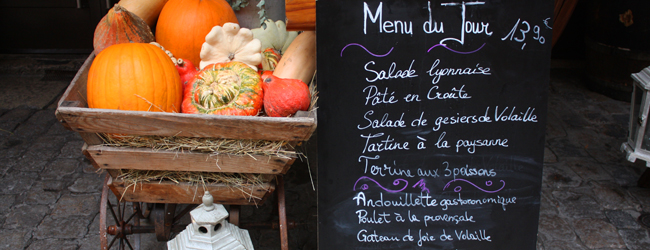 Menu du Jour
13,90€
Salade lyonnaise
Pâté en Croûte
Salade de gesiers de Volaille
Tartine à la paysanne
Terrine aux 3 poissons
Andouillette gastronomique
Poulet à la provençale
Gateau de foie de Volaille